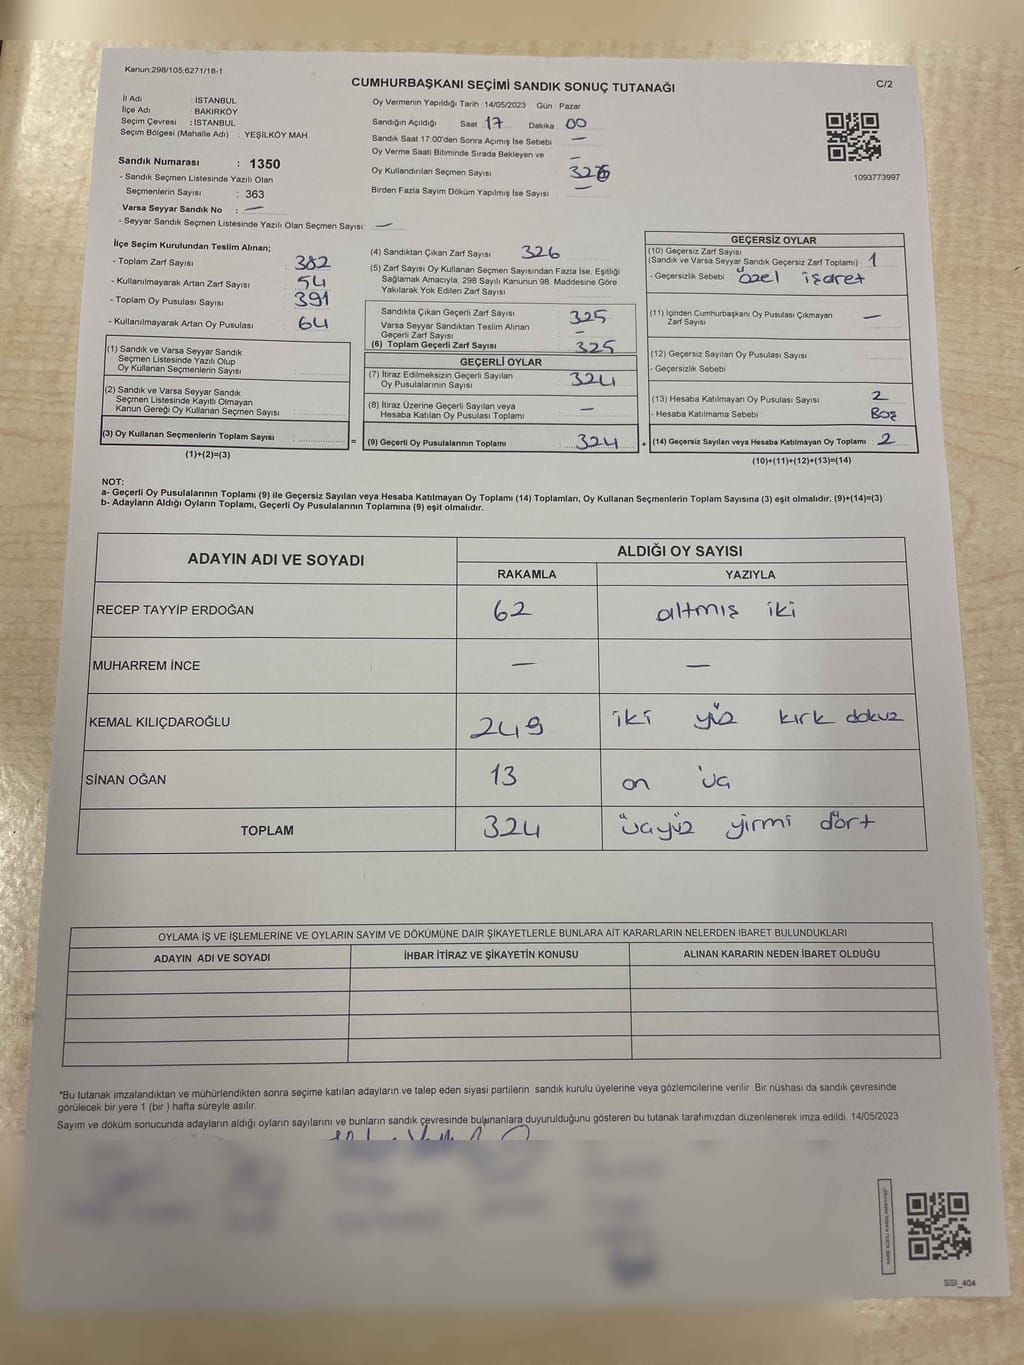 Kanun;298/105;6271/18-1
CUMHURBAŞKANI SEÇİMİ SANDIK SONUÇ TUTANAĞI
C/2
İl Adı : İSTANBUL
İlçe Adı : BAKIRKÖY
Seçim Çevresi : İSTANBUL
Seçim Bölgesi (Mahalle Adı) : YEŞİLKÖY MAH.
Sandık Numarası : 1350
- Sandık Seçmen Listesinde Yazılı Olan
Seçmenlerin Sayısı : 363
Varsa Seyyar Sandık No : —
- Seyyar Sandık Seçmen Listesinde Yazılı Olan Seçmen Sayısı: —
Oy Vermenin Yapıldığı Tarih : 14/05/2023 Gün : Pazar
Sandığın Açıldığı Saat : 17 Dakika : 00
Sandık Saat 17:00'den Sonra Açımış İse Sebebi : —
Oy Verme Saati Bitiminde Sırada Bekleyen ve
Oy Kullandırılan Seçmen Sayısı : —
Birden Fazla Sayım Döküm Yapılmış İse Sayısı : —
1093773997
İlçe Seçim Kurulundan Teslim Alınan;
- Toplam Zarf Sayısı : 382
- Kullanılmayarak Artan Zarf Sayısı : 54
- Toplam Oy Pusulası Sayısı : 391
- Kullanılmayarak Artan Oy Pusulası : 64
(1) Sandık ve Varsa Seyyar Sandık
Seçmen Listesinde Yazılı Olup
Oy Kullanan Seçmenlerin Sayısı :
(2) Sandık ve Varsa Seyyar Sandık
Seçmen Listesinde Kayıtlı Olmayan
Kanun Gereği Oy Kullanan Seçmen Sayısı :
(3) Oy Kullanan Seçmenlerin Toplam Sayısı :
(1)+(2)=(3)
(4) Sandıktan Çıkan Zarf Sayısı : 326
(5) Zarf Sayısı Oy Kullanan Seçmen Sayısından Fazla İse, Eşitliği
Sağlamak Amacıyla, 298 Sayılı Kanunun 98. Maddesine Göre
Yakılarak Yok Edilen Zarf Sayısı :
Sandıkta Çıkan Geçerli Zarf Sayısı : 325
Varsa Seyyar Sandıktan Teslim Alınan
Geçerli Zarf Sayısı : —
(6) Toplam Geçerli Zarf Sayısı : 325
GEÇERLİ OYLAR
(7) İtiraz Edilmeksizin Geçerli Sayılan
Oy Pusulalarının Sayısı : 324
(8) İtiraz Üzerine Geçerli Sayılan veya
Hesaba Katılan Oy Pusulası Toplamı : —
= (9) Geçerli Oy Pusulalarının Toplamı : 324
GEÇERSİZ OYLAR
(10) Geçersiz Zarf Sayısı
(Sandık ve Varsa Seyyar Sandık Geçersiz Zarf Toplamı) : 1
- Geçersizlik Sebebi : özel işaret
(11) İçinden Cumhurbaşkanı Oy Pusulası Çıkmayan
Zarf Sayısı : —
(12) Geçersiz Sayılan Oy Pusulası Sayısı :
- Geçersizlik Sebebi :
(13) Hesaba Katılmayan Oy Pusulası Sayısı : 2
- Hesaba Katılmama Sebebi : Boş
+ (14) Geçersiz Sayılan veya Hesaba Katılmayan Oy Toplamı : 2
(10)+(11)+(12)+(13)=(14)
NOT:
a- Geçerli Oy Pusulalarının Toplamı (9) ile Geçersiz Sayılan veya Hesaba Katılmayan Oy Toplamı (14) Toplamları, Oy Kullanan Seçmenlerin Toplam Sayısına (3) eşit olmalıdır. (9)+(14)=(3)
b- Adayların Aldığı Oyların Toplamı, Geçerli Oy Pusulalarının Toplamına (9) eşit olmalıdır.
ADAYIN ADI VE SOYADI
ALDIĞI OY SAYISI
RAKAMLA YAZIYLA
RECEP TAYYİP ERDOĞAN 62 altmış iki
MUHARREM İNCE — —
KEMAL KILIÇDAROĞLU 249 iki yüz kırk dokuz
SİNAN OĞAN 13 on üç
TOPLAM 324 üçyüz yirmi dört
OYLAMA İŞ VE İŞLEMLERİNE VE OYLARIN SAYIM VE DÖKÜMÜNE DAİR ŞİKAYETLERLE BUNLARA AİT KARARLARIN NELERDEN İBARET BULUNDUKLARI
ADAYIN ADI VE SOYADI İHBAR İTİRAZ VE ŞİKAYETİN KONUSU ALINAN KARARIN NEDEN İBARET OLDUĞU
*Bu tutanak imzalandıktan ve mühürlendikten sonra seçime katılan adayların ve talep eden siyasi partilerin sandık kurulu üyelerine veya gözlemcilerine verilir. Bir nüshası da sandık çevresinde
görülecek bir yere 1 (bir ) hafta süreyle asılır.
Sayım ve döküm sonucunda adayların aldığı oyların sayılarını ve bunların sandık çevresinde bulunanlara duyurulduğunu gösteren bu tutanak tarafımızdan düzenlenerek imza edildi. 14/05/2023
SSI_404